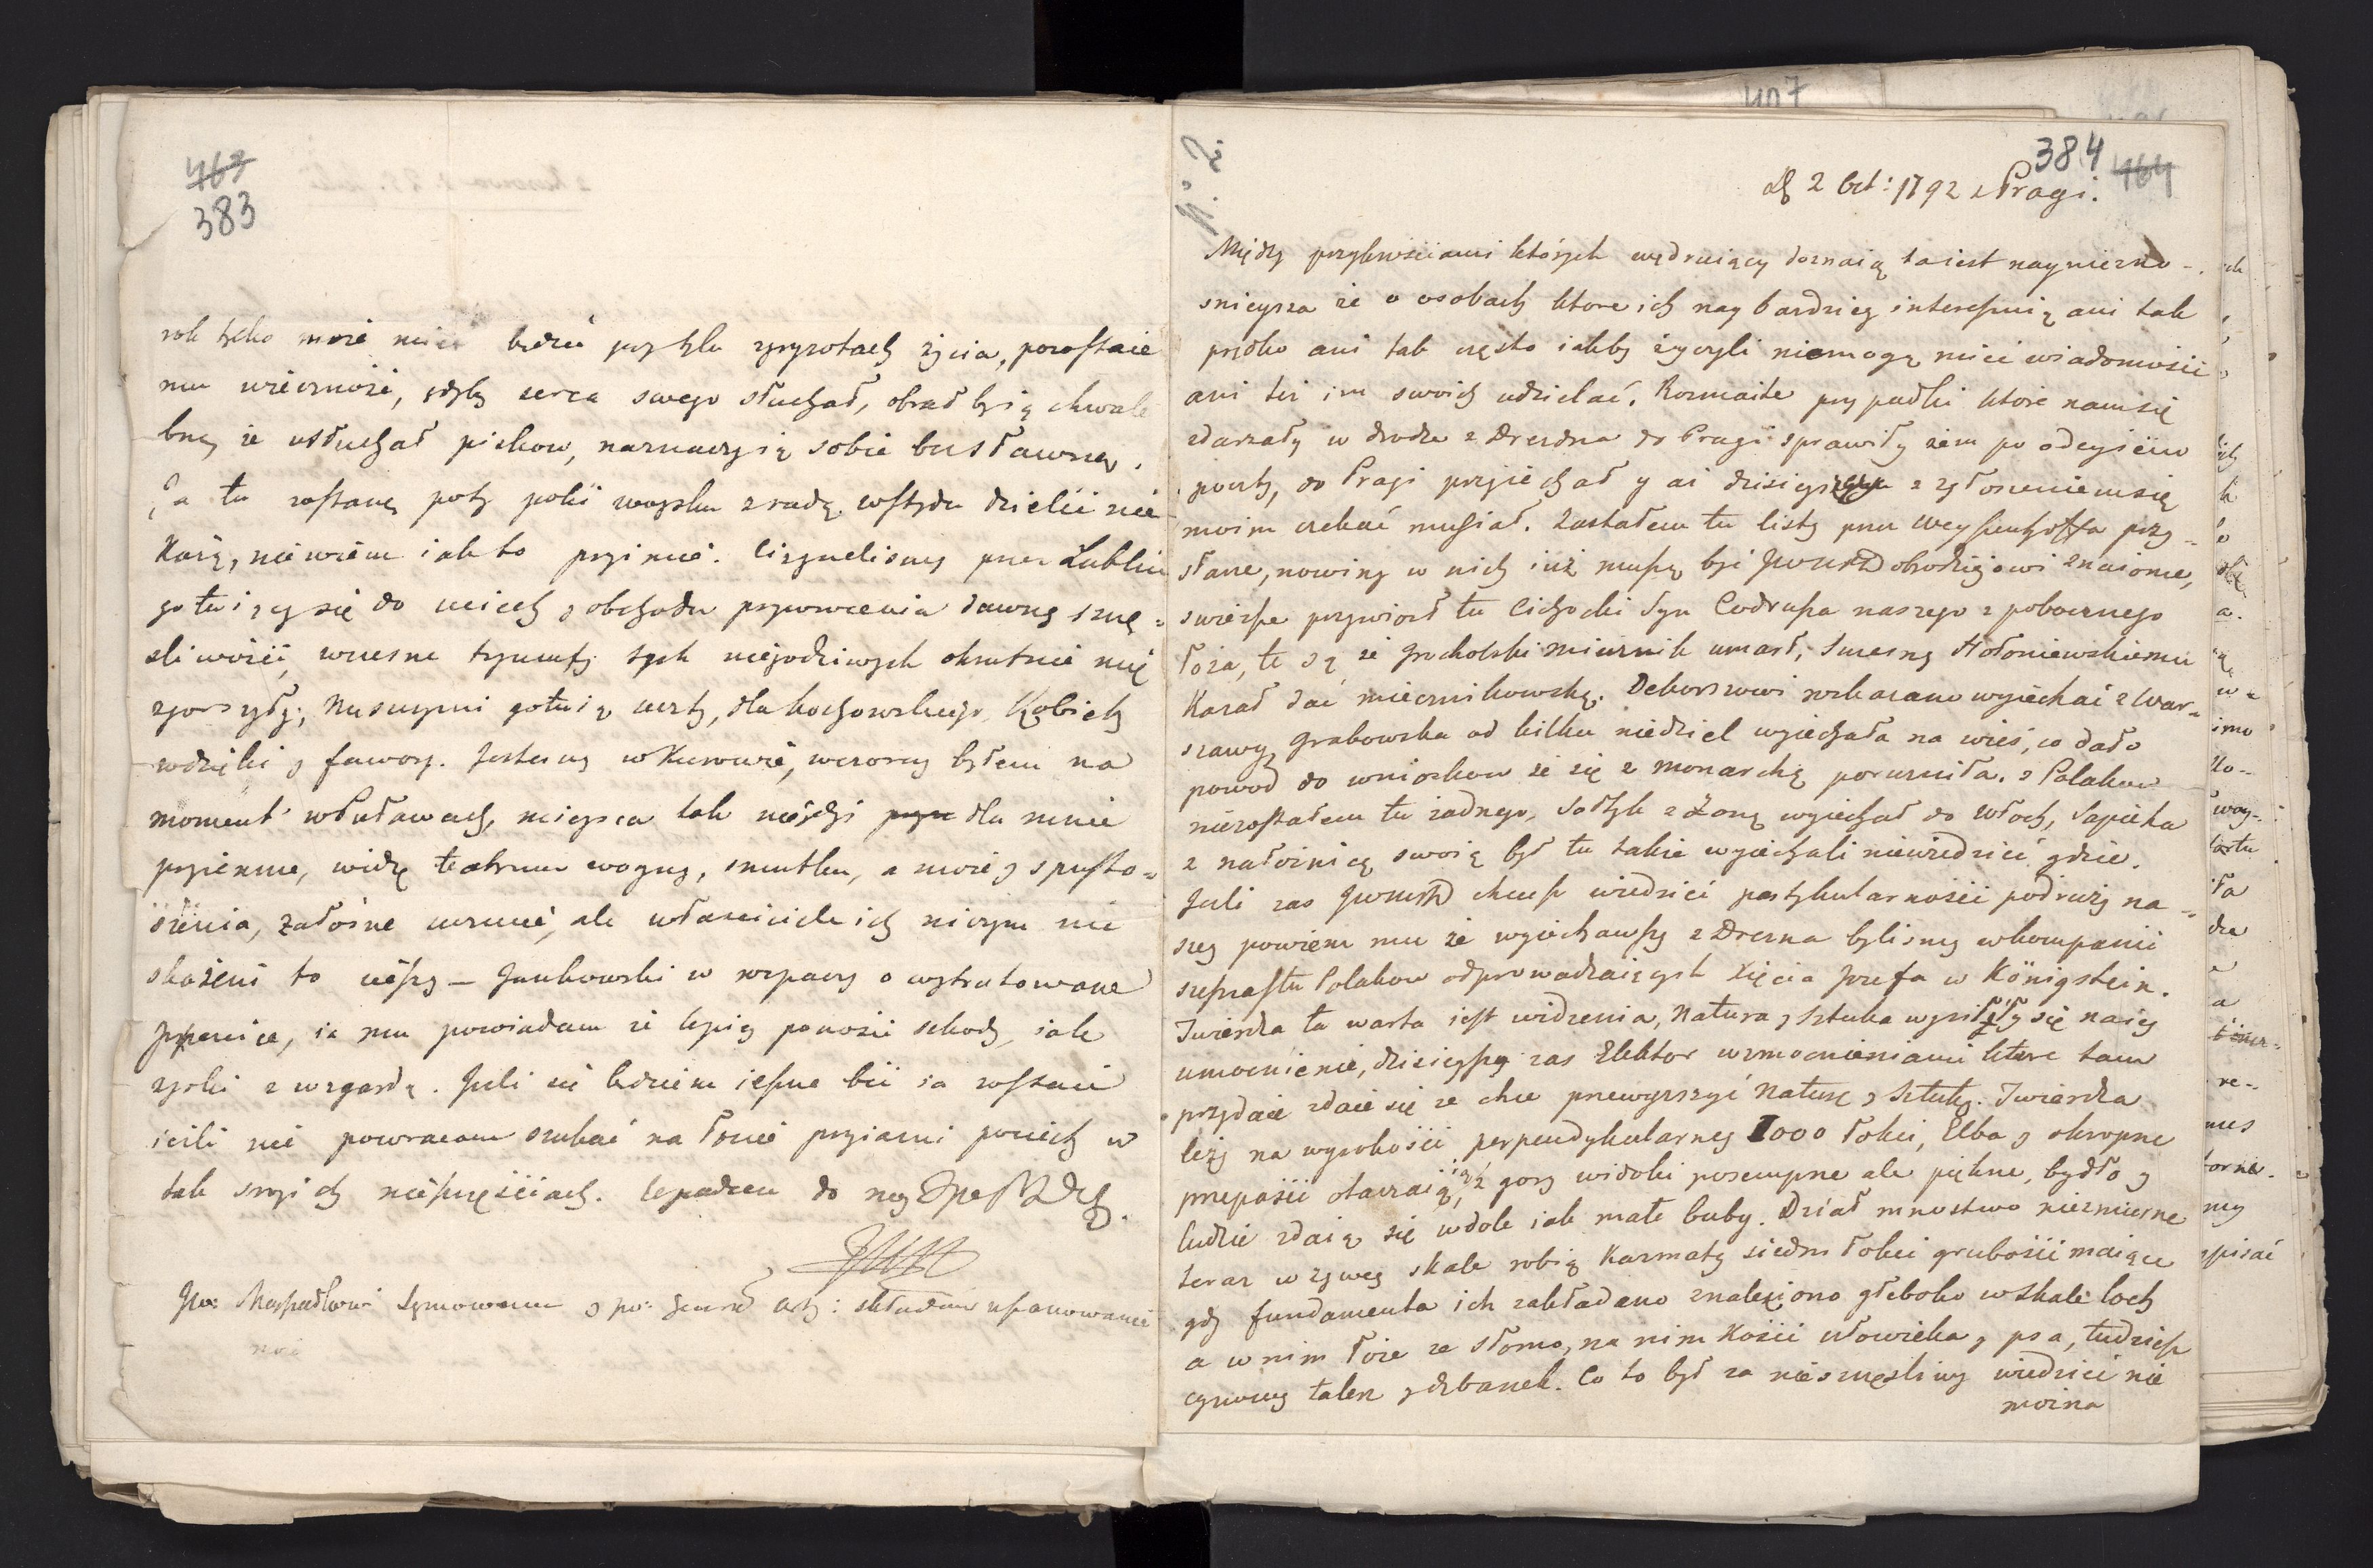 463
383
rok tylko może mieć będzie przy tylu zgryzotach życia, pozostaie
mu wieczność, gdyby serca swego słuchał, obrałby ią chwale
bną, że usłuchał piekow, naznaczy ią sobie bezsławną.
Ja tu zostanę poty poki woysku z radą wstydu dzielić nie
każą, niewiem iak to przimie. Ciągneliśmy przez Lublin
gotuiący się do uciech y obchodu przywrócenia dawney szczę=
śliwości, wczesne tryumfy tych niegodziwych okrutnie mię
zgorszyły; Mussynni gotuią uczty, dla Kochowskiego, Kobiety
wdzięki y fawory. Jesteśmy w Kurowie, wczoray byłem na
moment w Puławach, mieysca tak niegdyś dla mnie
przyiemne, widzę teatrum woyny, smutku, a może y spusto=
szenia, żałośne uczucie, ale właściciele ich niczym nie
skażeni to cieszy – Jankowski w rozpaczy o wytratowane
pszenice, ia mu powiadam że lepiey ponosić szkody, iak
zyski z wzgardą. Jeśli się będziem ieszcze bić ia zostaie
ieśli nie powracam szukać na łonie przyiaźni pociech w
tak srogich nieszczęściach. Upadam do nog
JWo: Marszałkowi Seymowemu y po: Generał Arty: składam uszanowanie
moie
407
384 464
N. 2
D 2 Oct: 1792 z Pragi.
Między przykrościami których wędruiący doznaią ta iest nayniezno-
śnieysza że o osobach ktore ich nay bardziey interessuią ani tak
prędko ani tak często iakby życzyli niemogą mieć wiadomości
ani też im swoich udzielać. Rozmaite przypadki ktore nam się
zdarzały w drodze z Drezdna do Pragi sprawiły żem po odeyściu
poczty, do Pragi przyiechał y aż dzisieyszego z zgłoszeniem się
moim czekać musiał. Zastałem tu listy przez Weyssenhoffa przy=
słane, nowiny w nich iuż muszą być JWWMD obrodziejowi znaiome,
świeższe przywiozł tu Cichocki syn Codrusa naszego z pobocznego
łoża, te są, że Grocholski Miecznik umarł, Szczęsny Hołoniewskiemu
kazał dać miecznikowską. Dekorzowi rozkazano wyiechać z War=
szawy, Grabowska od kilku niedziel wyiechała na wieś, co dało
powod do wnioskow że się z Monarchą poruzniła. z Polakow
niezostałem tu żadnego, Sołtyk z Żoną wyiechał do Włoch, Sapieha
z nałożnicą swoią był tu także wyiechali niewiedzieć gdzie.
Jeśli zas JWWMD chcesz wiedzieć partykularności podroży na=
szey powiem mu że wyiechawszy z Drezna byliśmy w kompanii
szesnastu Polakow odprowadzaiących Xięcia Jozefa w Königstein.
Twierdza ta warta iest widzenia, Natura y Sztuka wysiliły się na iey
umocnienie, dzisieyszy zas Elektor wzmocnieniami ktore tam
przydaie zdaie się że chce przewyższyć Naturę y Sztukę. Twierdza
leży na wysokości perpendykularney 1000 łokci, Elba y okropne
przepaści otaczaią ią, z gory widoki posempne ale piękne, bydło y
ludzie zdaią się w dole iak małe buby. Dział mnostwo niezmierne
teraz w żywey skale robią Kazmaty siedm łokci grubości maiące
gdy fundamenta ich zakładano znaleziono głęboko w skale loch
a w nim łoże ze słomą, na nim Kości człowieka y psa, tudzież
cynowy talerz y dzbanek. Co to był za nieszczęśliwy wiedzieć nie
można